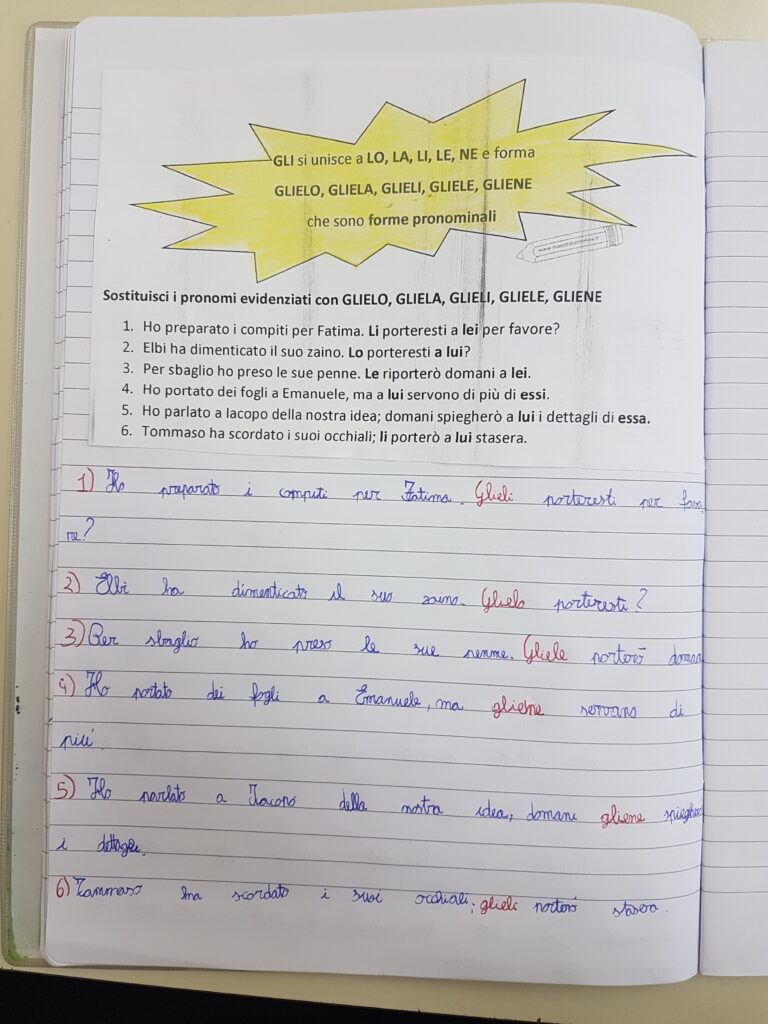 GLI si unisce a LO, LA, LI, LE, NE e forma
GLIELO, GLIELA, GLIELI, GLIELE, GLIENE
che sono forme pronominali
Sostituisci i pronomi evidenziati con GLIELO, GLIELA, GLIELI, GLIELE, GLIENE
1. Ho preparato i compiti per Fatima. Li porteresti a lei per favore?
2. Elbi ha dimenticato il suo zaino. Lo porteresti a lui?
3. Per sbaglio ho preso le sue penne. Le riporterò domani a lei.
4. Ho portato dei fogli a Emanuele, ma a lui servono di più di essi.
5. Ho parlato a Iacopo della nostra idea; domani spiegherò a lui i dettagli di essa.
6. Tommaso ha scordato i suoi occhiali; li porterò a lui stasera.
1) Ho preparato i compiti per Fatima. Glieli porteresti per favo
re?
2) Elbi ha dimenticato il suo zaino. Glielo porteresti?
3) Per sbaglio ho preso le sue penne. Gliele porterò doman
4) Ho portato dei fogli a Emanuele, ma gliene servono di
più.
5) Ho parlato a Iacopo della nostra idea, domani gliene spiegherò
i dettagli.
6) Tommaso ha scordato i suoi occhiali; glieli porterò stasera.